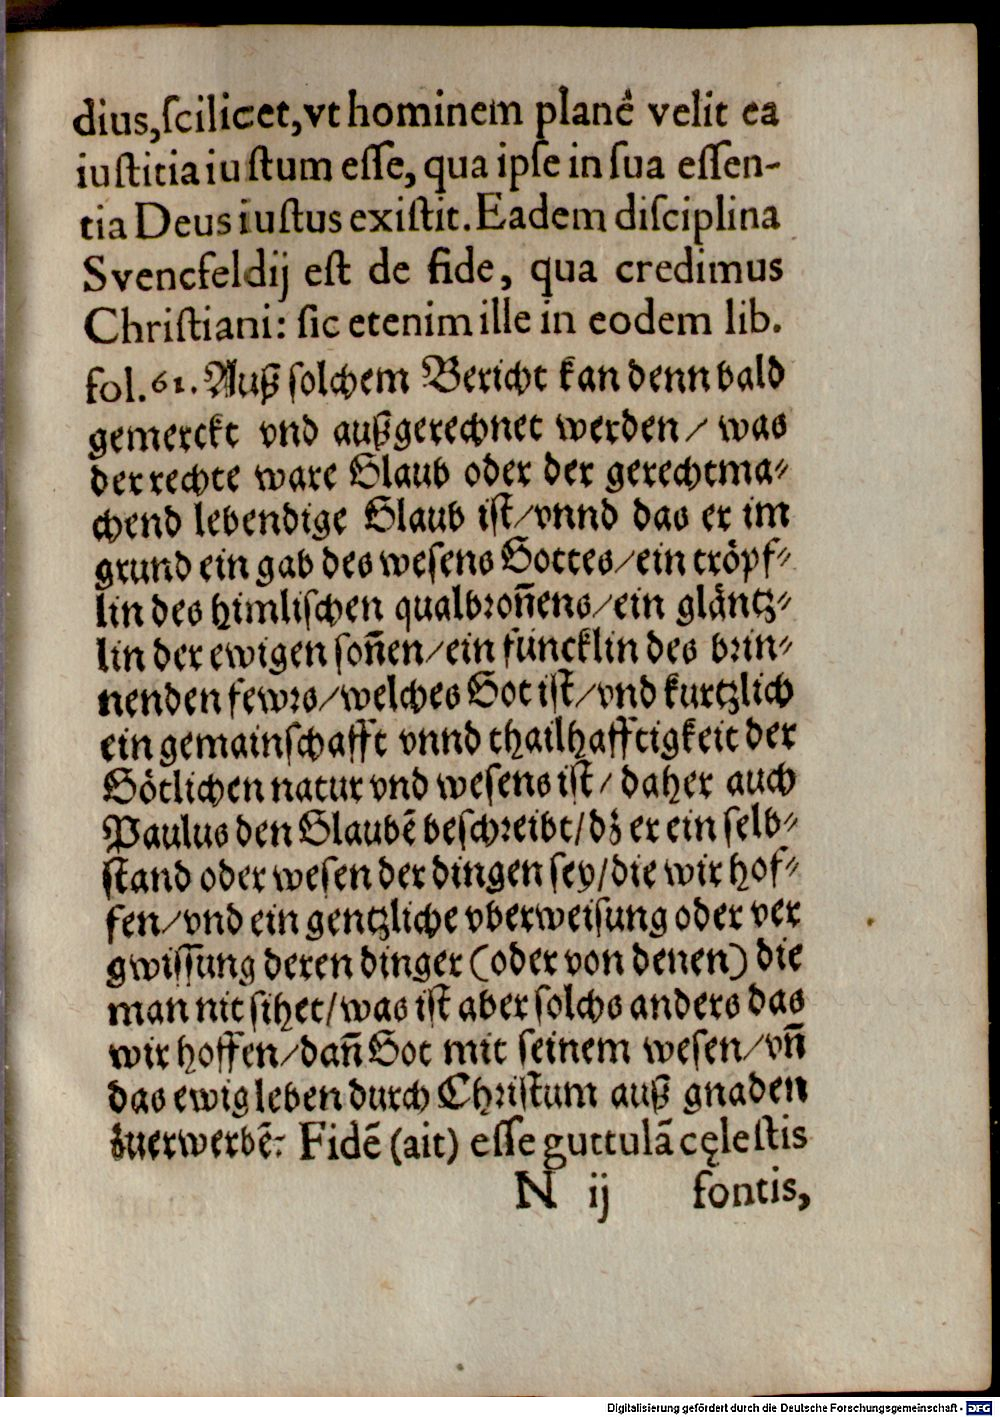 dius,ſcilicet,vt hominem planè velit ea
iuſtitia iuſtum eſſe, qua ipſe in ſua eſſen-
tia Deus iuſtus exiſtit. Eadem diſciplina
Svencfeldij eſt de fide, qua credimus
Chriſtiani: ſic etenim ille in eodem lib.
fol. 61. Auß ſolchem Bericht kan denn bald
gemerckt vnd außgerechnet werden/ was
der rechte ware Glaub oder der gerechtma⸗
chend lebendige Glaub iſt/vnnd das er im
grund ein gab des weſens Gottes/ein tröpf⸗
lin des himliſchen qualbꝛoñens/ein gläntz⸗
lin der ewigen ſoñen/ein füncklin des bꝛin⸗
nenden fewꝛs/welches Got iſt/vnd kurtzlich
ein gemainſchafft vnnd thailhafftigkeit der
Götlichen natur vnd weſens iſt/ daher auch
Paulus den Glaubē beſchꝛeibt/dz er ein ſelb⸗
ſtand oder weſen der dingen ſey/die wir hof⸗
fen/vnd ein gentzliche vberweiſung oder ver
gwiſſung deren dinger (oder von denen) die
man nit ſihet/was iſt aber ſolchs anders das
wir hoffen/dañ Got mit ſeinem weſen/vñ
das ewig leben durch Chꝛiſtum auß gnaden
zuerwerbē: Fidē (ait) eſſe guttulā cęleſtis
N ij fontis,
Digitalisierung gefördert durch die Deutsche Forschungsgemeinschaft - DFG